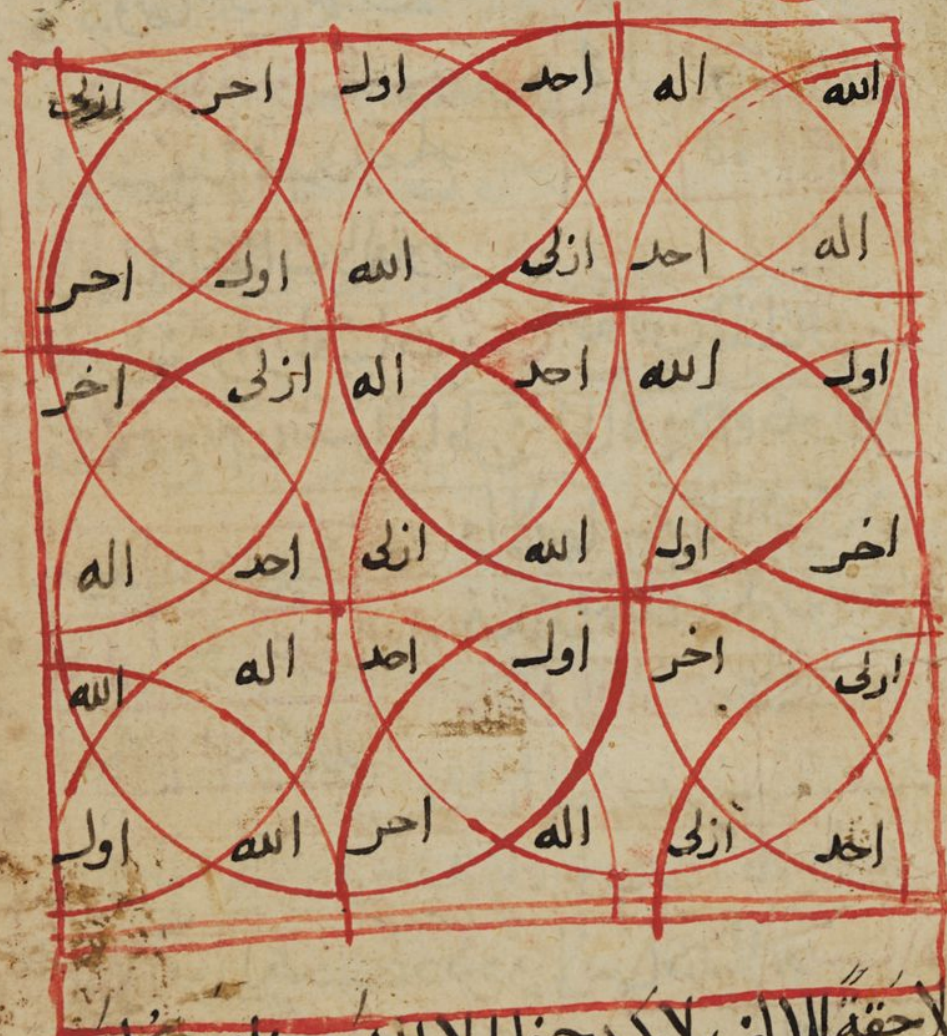 الله اله احد اول اخر ازلى
اله احد ازلى الله اول احر
اول الله احد اله ازلى اخر
اخر اول الله ازلى احد اله
ازلى اخر اول احد اله الله
احد ازلى اله احر الله اول